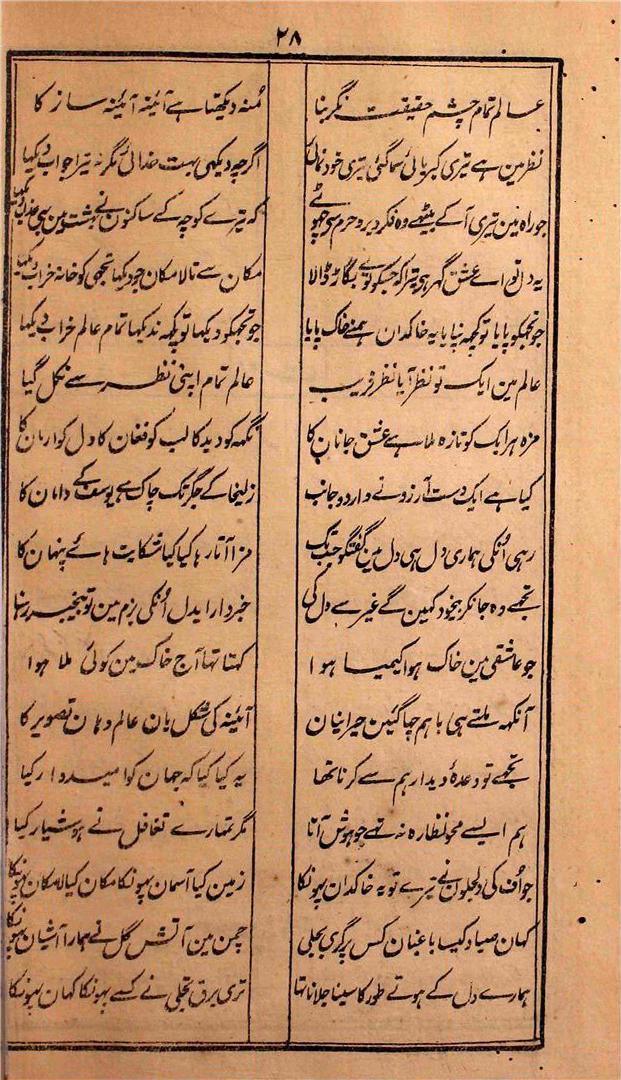 ۲۸
عالم تمام چشم حقیقت نگر بنا
منہ دیکھتا ہے آئینہ آئینہ ساز کا
نظر مین ہے تیری کبریائی سما گئی تیری خود نمائی
اگرچہ دیکھی بہت خدائی مگر نہ تیرا جواب دیکھا
جو راہ مین تیری آ کے بیٹھے وہ فکر دیر و حرم سے چھوٹے
کہ تیرے کوچہ کے ساکنون نے بہشت مین بھی عذاب دیکھا
یہ دل تو اے عشق گھر ہی تیرا کہ جسکو تونے بگاڑ ڈالا
مکان سے تالا مکان جو دیکھا تجھی کو خانہ خراب دیکھا
جو تجھکو پایا تو کچھ نپایا یہ خاکدان ہمنے خاک پایا
جو تجھکو دیکھا تو کچھ ندیکھا تمام عالم خراب دیکھا
عالم مین ایک تو نظر آیا نظر فریب
عالم تمام اپنی نظر سے نکل گیا
مزہ ہر ایک کو تازہ ملا ہے عشق جانان کا
نگہ کو دید کا لب کو فغان کا دل کو ارمان کا
کیا ہے ایک دست آرزو نے وار دو جانب
زلیخا کے جگر تک چاک ہے یوسف کے دامان کا
رہی اُنکی ہماری دل ہی دل مین گفتگو جب تک
مزا آتا رہا کیا کیا شکایت ہائے پنہان کا
تجھے وہ جانکر بیخود کہین گے غیر سے دل کی
خبردار ایدل اُنکی بزم مین تو بیخبر رہنا
جو عاشقی مین خاک ہوا کیمیا ہوا
کہتا تھا آج خاک مین کوئی ملا ہوا
آنکھہ ملتے ہی باہم چھا گئین حیرانیان
آئینہ کی شکل یان عالم وہان تصویر کا
تجھے تو وعدۂ دیدار ہم سے کرنا تھا
یہ کیا کیا کہ جہان کو امیدوار کیا
ہم ایسے محو نظارہ نہ تھے جو ہوش آتا
مگر تمہارے تغافل نے ہوشیار کیا
جو اُف کی دلجلون نے تیرے تو یہ خاکدان پھونکا
زمین کیا آسمان پھونکا مکان کیا لامکان پھونکا
کہان صیاد کیسا باغبان کس پر گری بجلی
چمن مین آتش گل نے ہمارا آشیان پھونکا
ہمارے دل کے ہوتے طور کا سینا جلانا تھا
تری برق تجلی نے کسے پھونکا کہان پھونکا